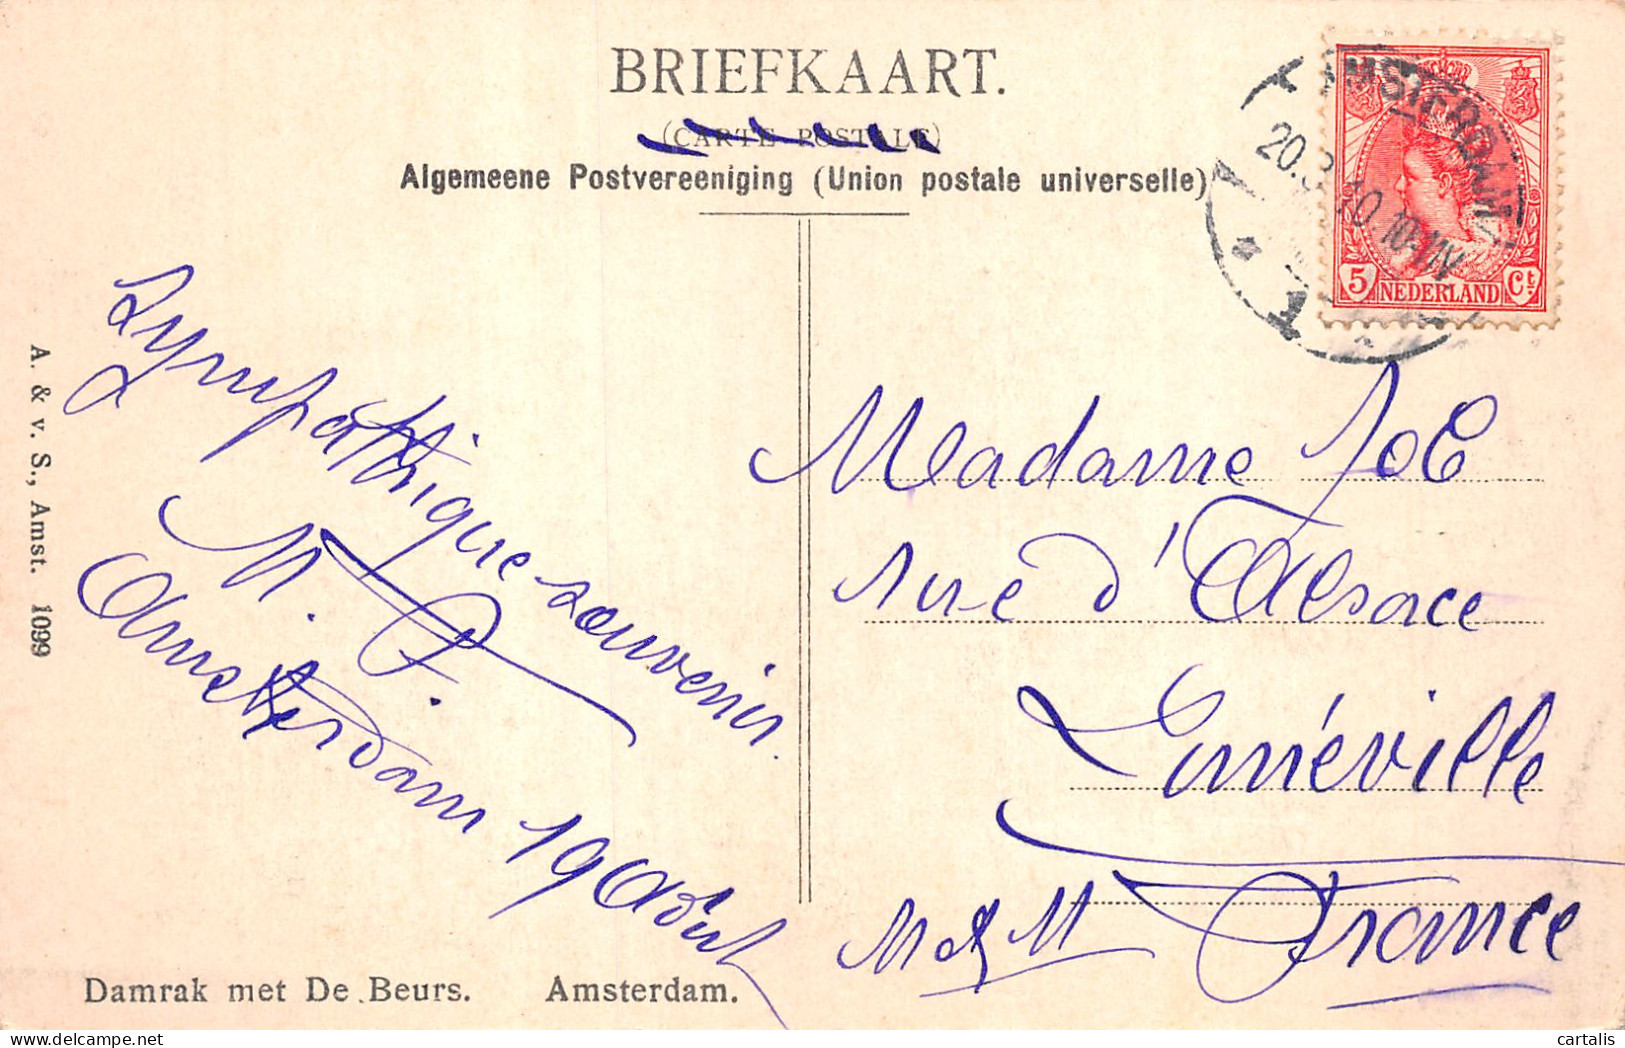 BRIEFKAART.
(CARTE POSTALE)
Algemeene Postvereeniging (Union postale universelle)
AMSTERDAM
10-11V
1
5 NEDERLAND Ct
Sympathique souvenir.
M. F.
Amsterdam 19 Août
Madame Job
rue d'Alsace
Lunéville
M & M France
A. & v. S., Amst. 1099
Damrak met De Beurs. Amsterdam.
cartalis
delcampe.net